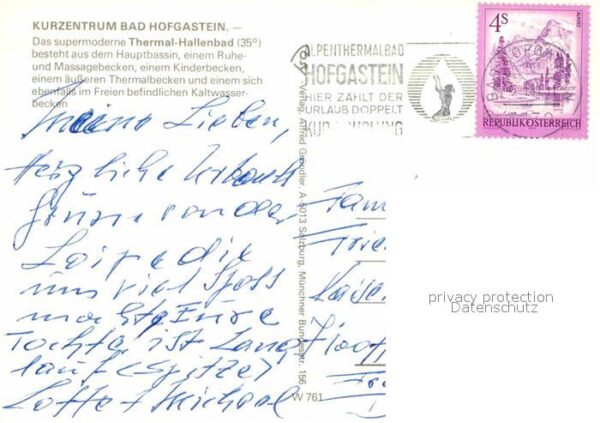 KURZENTRUM BAD HOFGASTEIN. –
Das supermoderne Thermal-Hallenbad (35°)
besteht aus dem Hauptbassin, einem Ruhe-
und Massagebecken, einem Kinderbecken,
einem äußeren Thermalbecken und einem sich
ebenfalls im Freien befindlichen Kaltwasser-
becken
Meine Lieben,
Herzliche Urlaubs
grüsse von der
Loipe die
uns viel Spass
macht Eure
Tochter ist Lang
lauf (Spitze)
Lotte + Michael
Verlag Alfred Gründler, A-5013 Salzburg, Münchner Bundesstr. 156
W 761
ALPENTHERMALBAD
HOFGASTEIN
HIER ZÄHLT DER
URLAUB DOPPELT
4S
REPUBLIK ÖSTERREICH
Fam
Kaise
privacy protection
Datenschutz